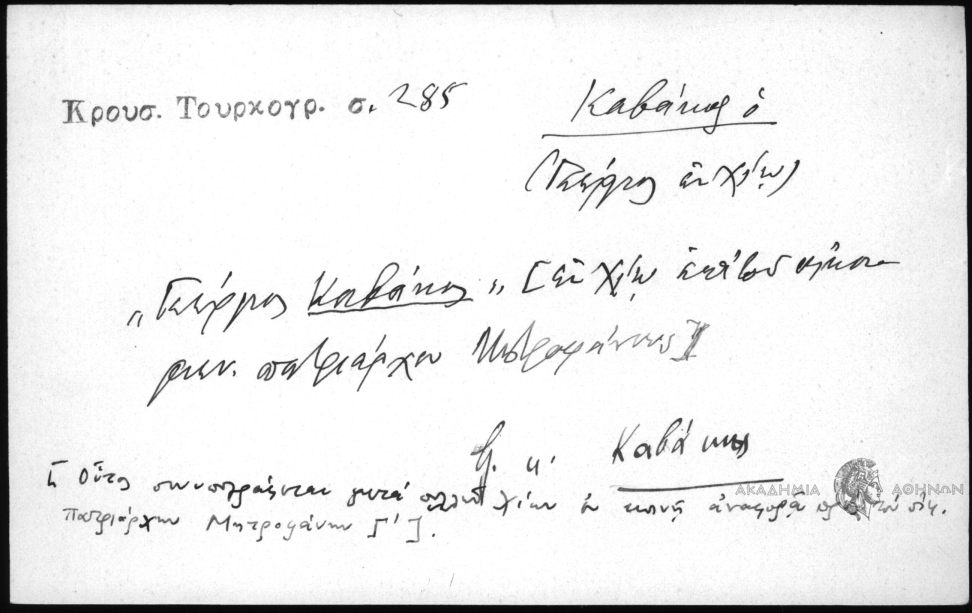 Κρουσ. Τουρκογρ. σ. 285
Καβάκος ὁ
(Γεώργιος ἐν Χίῳ)
„Γεώργιος Καβάκος„ [ἐν Χίῳ ἐπὶ τοῦ
μεν. πατριάρχου Μητροφάνους]
κ. Καβάκης
[Οὗτος συνυπογράφεται μετὰ Χίων ἐν κοινῇ ἀναφορᾷ τὸν οἰκ.
Πατριάρχην Μητροφάνην Γ΄].
ΑΚΑΔΗΜΙΑ ΑΘΗΝΩΝ